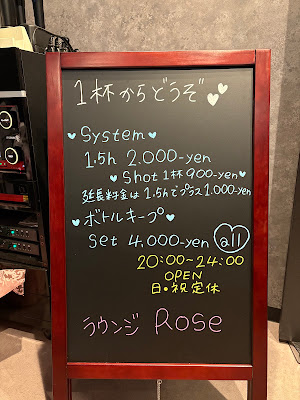 1杯からどうぞ
System
1.5h 2.000-yen
Shot 1杯 900-yen
延長料金は1.5hでプラス1.000-yen
ボトルキープ
Set 4.000-yen all
20:00~24:00
OPEN
日・祝定休
ラウンジ Rose